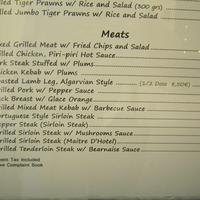 lled Tiger Prawns w/ Rice and Salad (300 grs)
lled Jumbo Tiger Prawns w/ Rice and Salad
Meats
xed Grilled Meat w/ Fried Chips and Salad
illed Chicken, Piri-piri Hot Sauce
rk Steak Stuffed w/ Plums
icken Kebab w/ Plums
asted Lamb Leg, Algarvian Style (1/2 Dose 8,50€)
illed Pork w/ Pepper Sauce
uck Breast w/ Glace Orange
illed Mixed Meat Kebab w/ Barbecue Sauce
ortuguese Style Sirloin Steak
epper Steak (Sirloin Steak)
illed Sirloin Steak w/ Mushrooms Sauce
illed Sirloin Steak (Maitre D'Hotel)
illed Tenderloin Steak w/ Bearnaise Sauce
Tax Included
Complaint Book